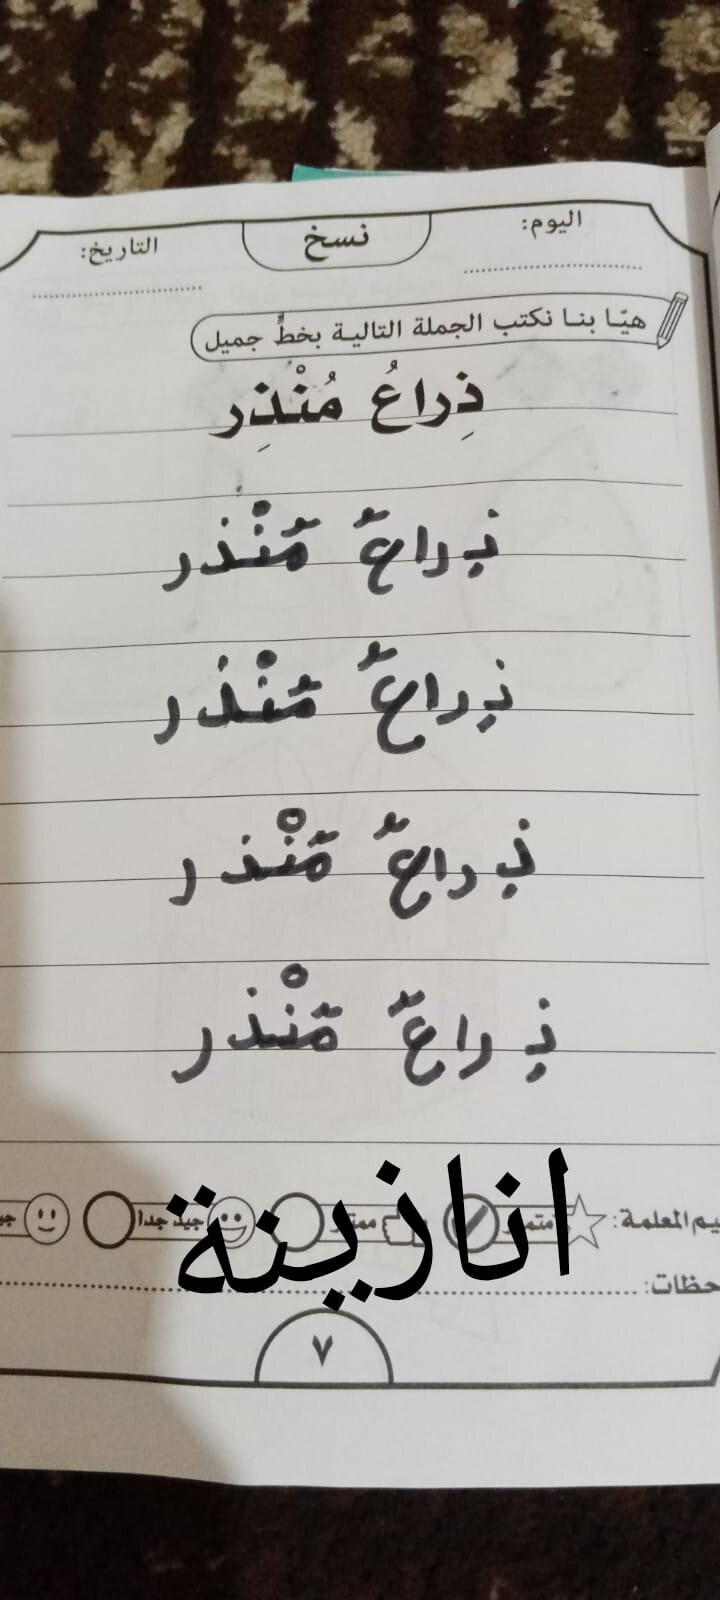 اليوم:
نسخ
التاريخ:
هيّا بنا نكتب الجملة التالية بخطٍّ جميل
ذِراعُ مُنْذِر
ذراعُ مُنْذر
ذراعُ مُنْذر
ذراعُ مُنْذر
ذراعُ مُنْذر
يم المعلمة: ممتاز جيد جداً
انا زينة
حظات:
٧